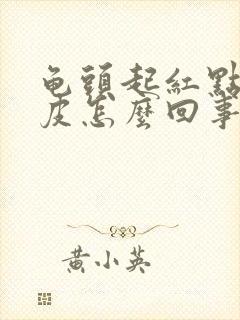 龟頭起紅點
皮怎麼回事
黃小英